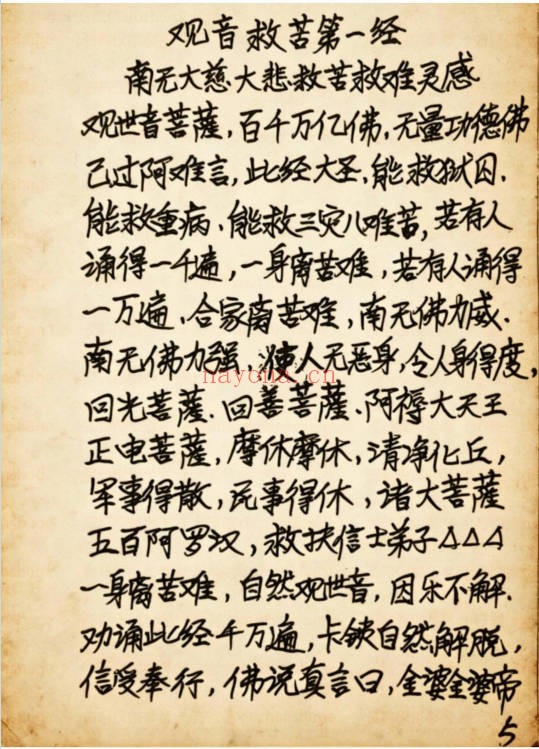 观音救苦第一经
南无大慈大悲救苦救难灵感
观世音菩薩，百千万亿佛，无量功德佛
己过阿难言，此经大圣，能救狱囚.
能救重病、能救三灾八难苦，若有人
诵得一千遍，一身离苦难，若有人诵得
一万遍、合家离苦难，南无佛力威.
南无佛力强，使人无恶身，令人身得度，
nayona.cn
回光菩薩.回善菩薩.阿褥大天王
正电菩薩，摩休摩休，清净化丘，
军事得散，民事得休，诸大菩薩
五百阿罗汉，救扶信士弟子△△△
一身离苦难，自然观世音，因乐不解.
劝诵此经千万遍，卡锁自然解脱，
信受奉行，佛说真言曰，金婆金婆帝
5